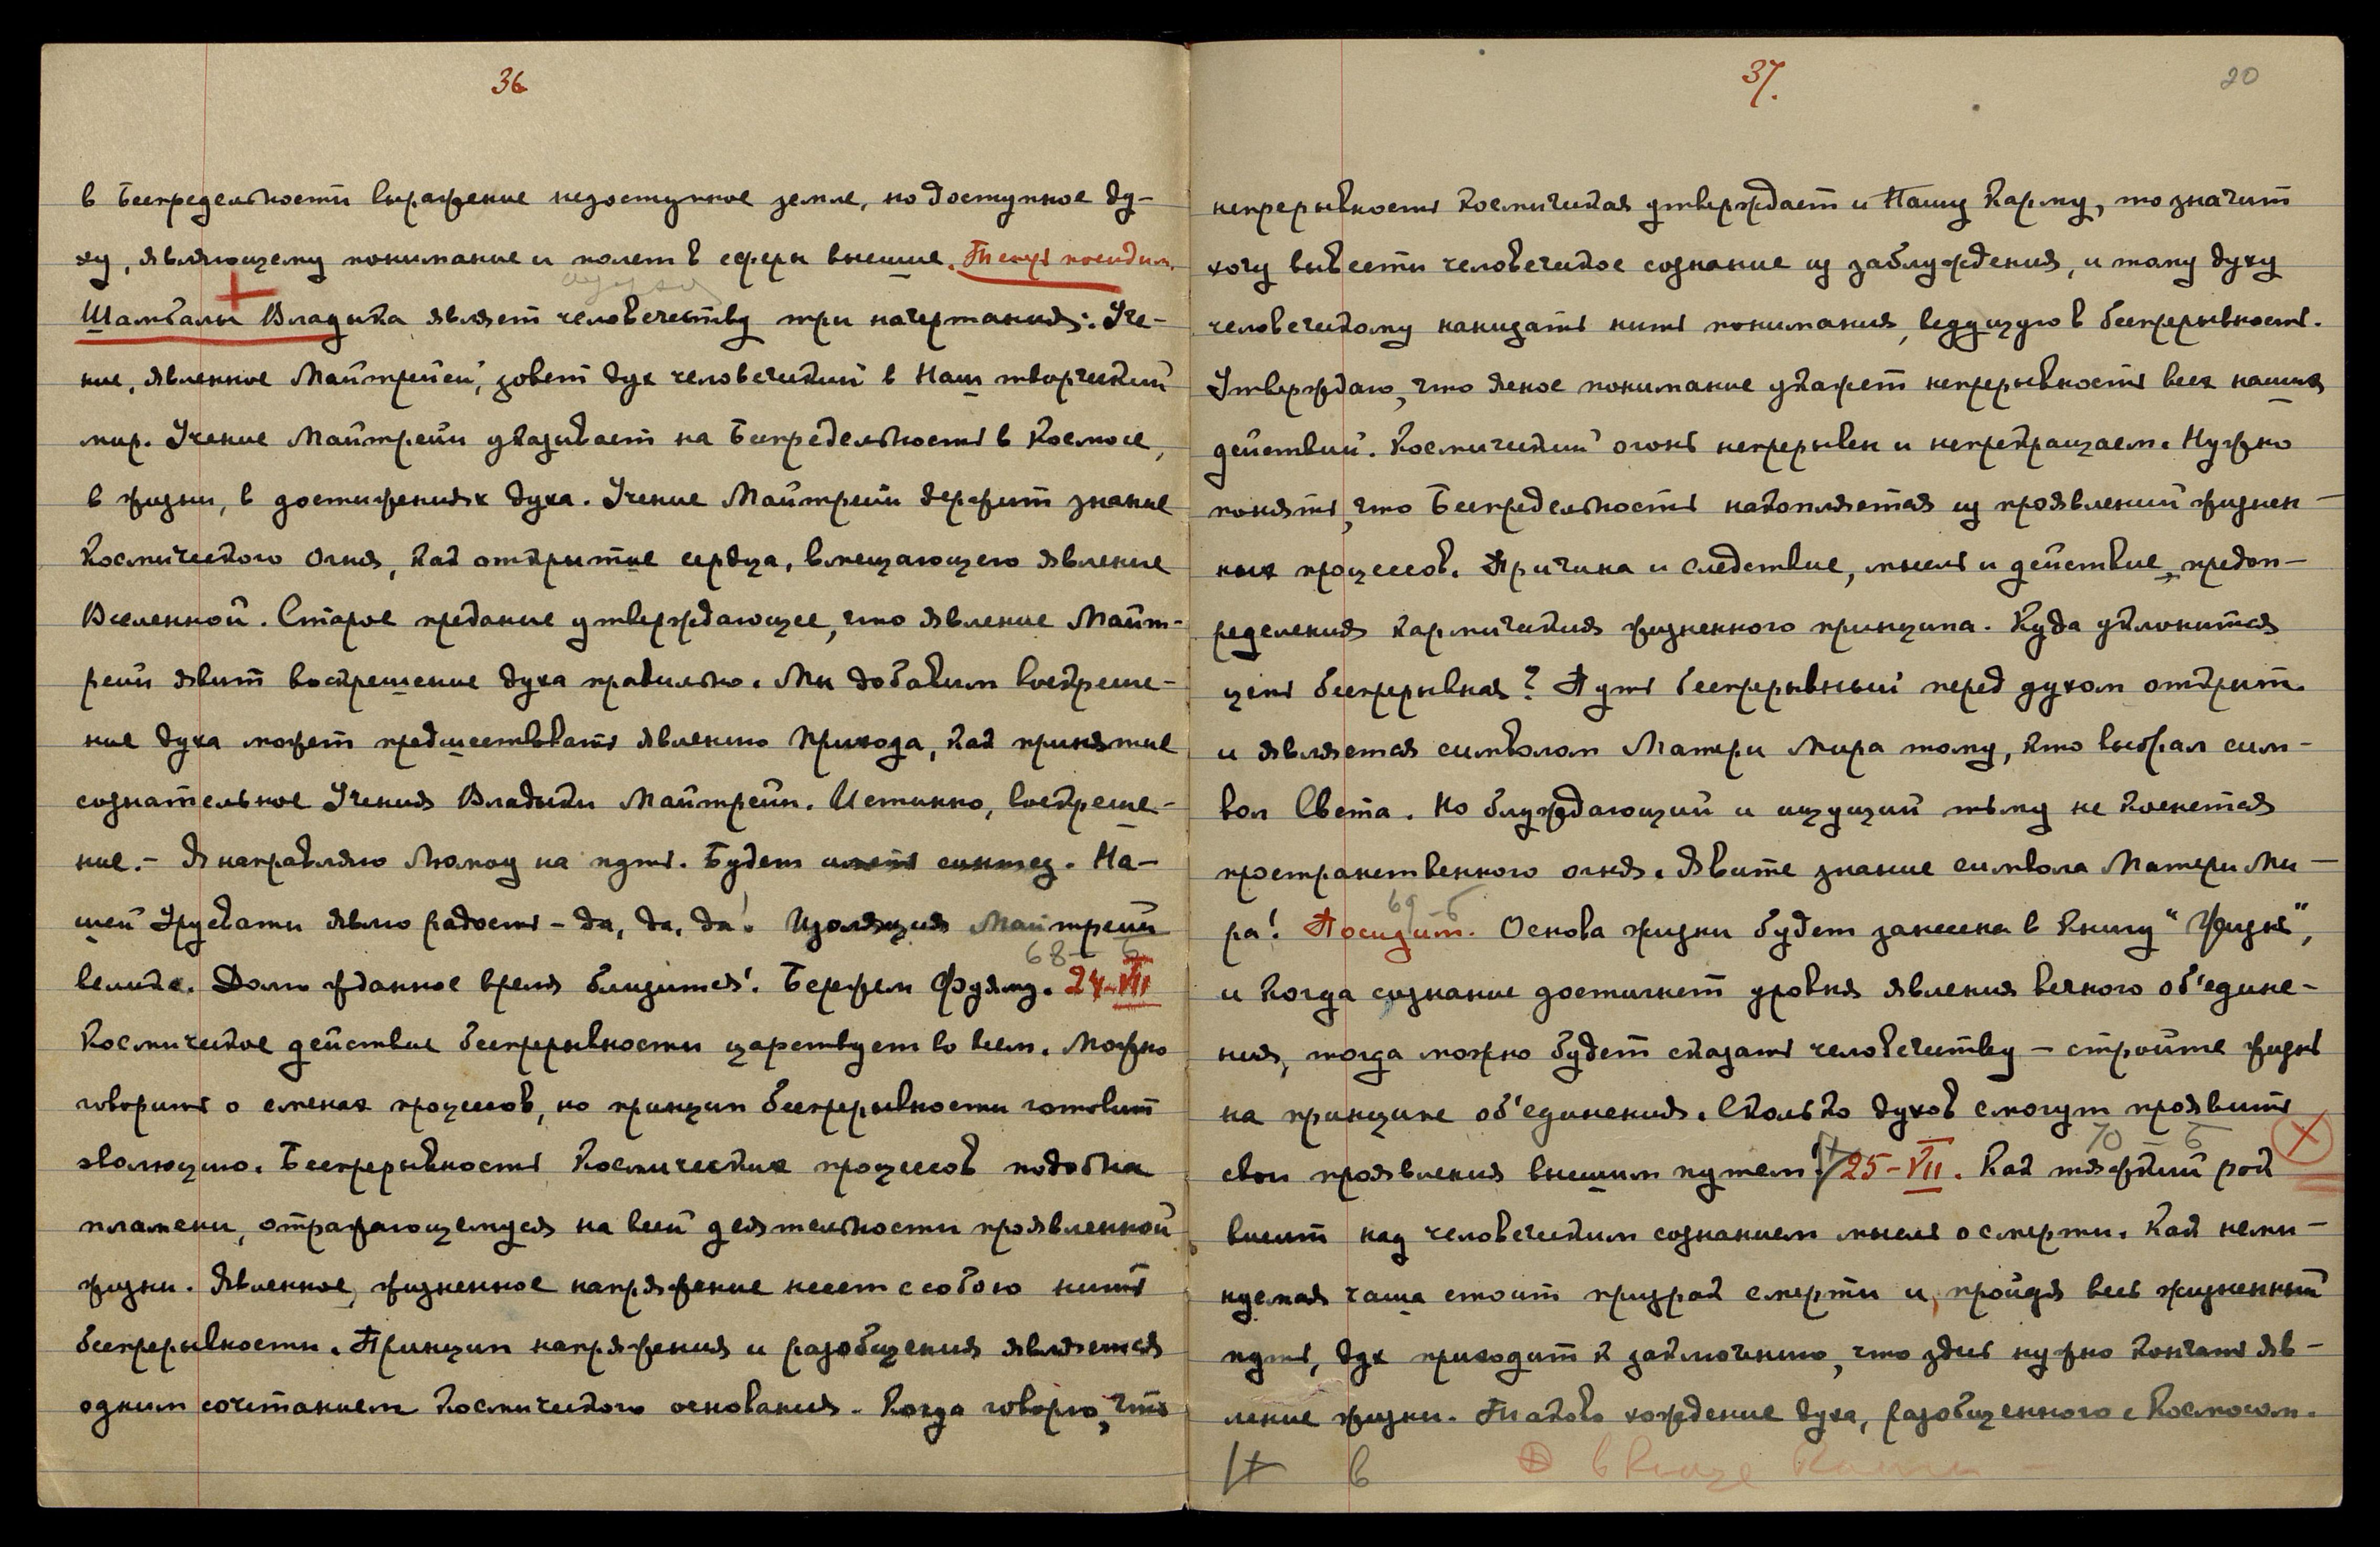 36
в Беспредельности выражение недоступное земле, но доступное ду-
ху, являющему понимание и полет в сферы высшие.
Шамбалы Владыка являет человечеству три начертания: Уче-
ние, явленное Майтрейей, зовет дух человеческий в Наш творческий
мир. Учение Майтрейи указывает на Беспредельность в Космосе,
в жизни, в достижениях духа. Учение Майтрейи держит знание
Космического Огня, как открытие сердца, вмещающего явление
Вселенной. Старое предание утверждающее, что явление Майт-
рейи явит воскрешение духа правильно. Мы добавим воскреше-
ние духа может предшествовать явлению Прихода, как принятие
сознательное Учения Владыки Майтрейи. Истинно, воскреше-
ние. - Я направляю Люмоу на путь. Будет синтез. На-
шей Урусвати явлю радость - да, да, да! Изоляция Майтрейи
68 - Б
велика. Долго жданное время близится! Бережем Фуяму. 24-VII
Космическое действие беспрерывности царствует во всем. Можно
говорить о сменах процессов, но принцип беспрерывности готовит
эволюцию. Беспрерывность Космических процессов подобна
пламени, отражающемуся на всей деятельности проявленной
жизни. Явленное, жизненное напряжение несет с собою нить
беспрерывности. Принцип напряжения и разобщения является
одним сочетанием Космического основания. Когда говорю, что
37.
20
непрерывность Космическая утверждает и Нашу Карму, то значит
хочу вывести человеческое сознание из заблуждения, и тому духу
человеческому нанизать нить понимания, ведущую в беспрерывность.
Утверждаю, что ясное понимание укажет непрерывность всех наших
действий. Космический огонь непрерывен и непрекращаем. Нужно
понять, что Беспредельность накопляется из проявлений жизнен-
ных процессов. Причина и следствие, мысль и действие, предоп-
ределения кармические жизненного принципа. Куда уклонится
цепь беспрерывная? Путь беспрерывный перед духом открыт
и является символом Матери Мира тому, кто выбрал сим-
вол Света. Но блуждающий и ищущий тьму не коснется
пространственного огня. Явите знание символа Матери Ми-
69 - Б
ра! Посидим. Основа жизни будет занесена в Книгу "Жизни",
и когда сознание достигнет уровня явления вечного об'едине-
ния, тогда можно будет сказать человечеству - стройте жизнь
на принципе об'единения. Сколько духов смогут проявить
70 - Б
свои проявления высшим путем! 25-VII. Как тяжкий рок
висит над человеческим сознанием мысль о смерти. Как неми-
нуемая чаша стоит призрак смерти и, пройдя весь жизненный
путь, дух приходит к заключению, что здесь нужно кончать яв-
ление жизни. Таково хождение духа, разобщенного с Космосом.
в